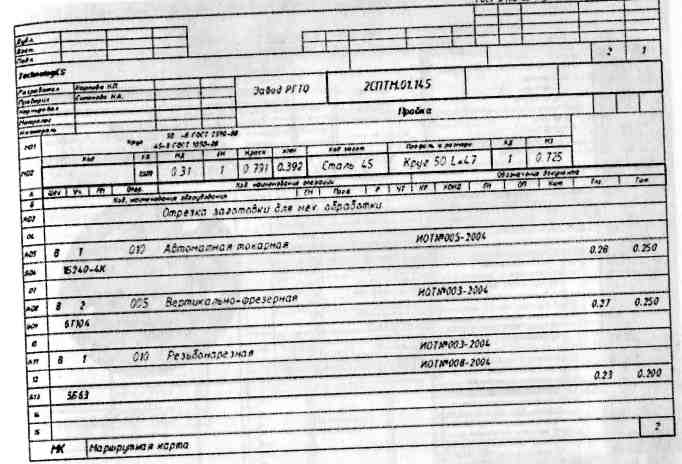 Дубл.
Взам.
Подл.
2 1
TechnologiCS
Разработал Карпова Н.П.
Проверил Н.А.
Завод РГТО 2СПТМ.01.145
Пробка
М01 Круг 50 -В ГОСТ 2590-88
45-Б ГОСТ 1050-88
Код ЕВ МД ЕН Н.расх КИМ Код загот Профиль и размеры КД МЗ
М02 0.31 1 0.791 0.392 Сталь 45 Круг 50 L=47 1 0.725
А Цех Уч. РМ Опер. Код, наименование операции Обозначение документа
Б Код, наименование оборудования СМ Проф Р УТ КР КОИД ЕН ОП Кшт Тпз Тшт
А03 Отрезка заготовки для мех. обработки
04
А05 8 1 010 Автоматная токарная ИОТ№005-2004
Б06 1Б240-4К 0.26 0.250
07
А08 8 2 005 Вертикально-фрезерная ИОТ№003-2004
Б09 6Г104 0.27 0.250
10
А11 8 1 010 Резьбонарезная ИОТ№003-2004
12 ИОТ№008-2004
Б13 5Б63 0.23 0.200
14
15
МК Маршрутная карта 2